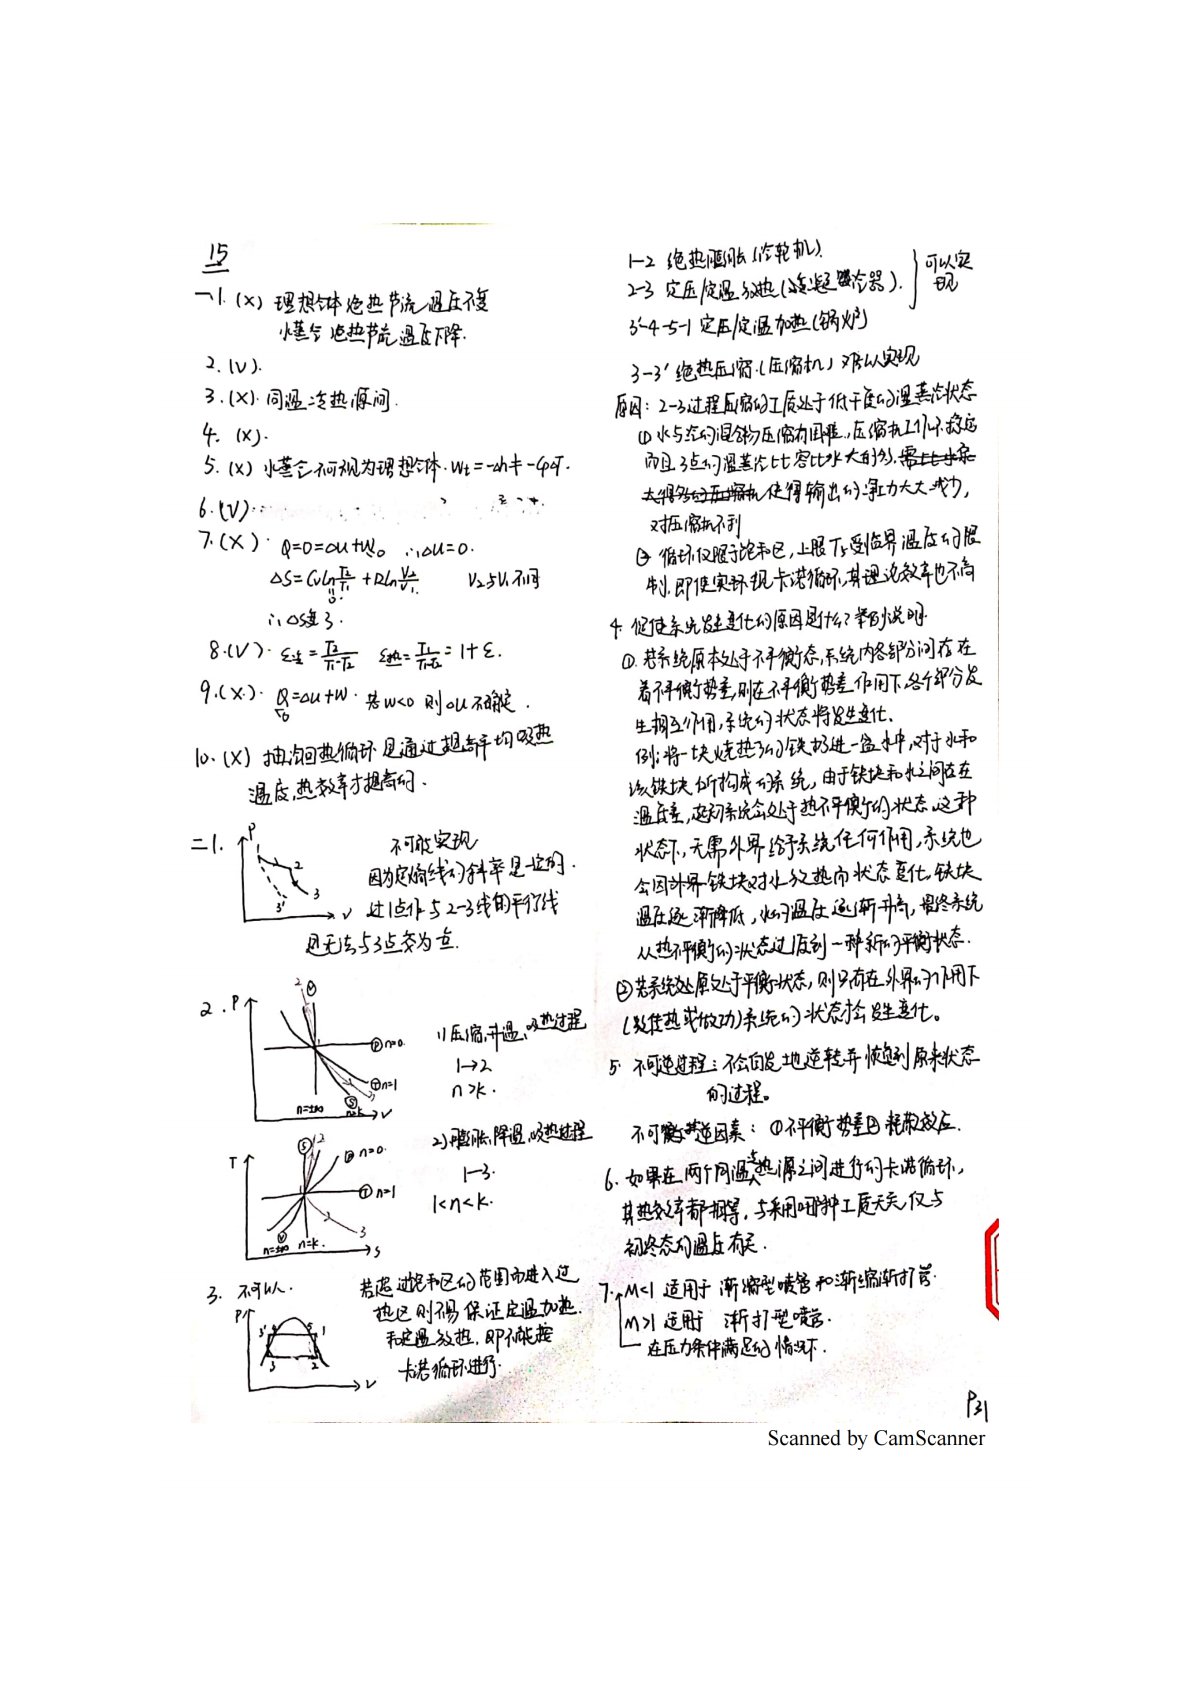 15
一1. (×) 理想气体绝热节流温度不变
水蒸气绝热节流温度下降.
2. (√).
3. (×). 同温冷热源间.
4. (×).
5. (×) 水蒸气不可视为理想气体. Wt=-Δh≠-CpΔT.
6. (√)
7. (×). Q=0=ΔU+W。 ∴ΔU=0.
ΔS=Cvln T2/T1 + Rln V2/V1. V2与V1不同
0
8. (√). ε冷= T2/(T1-T2) ε热= T1/(T1-T2) =1+ε.
9. (×). Q=ΔU+W. 若W<0 则ΔU不确定.
<0
10. (×) 抽汽回热循环是通过提高平均吸热
温度,热效率才提高的.
二1. P 1 2 3 3' V
不可能实现
因为定熵线的斜率是一定的.
过1点作与2-3线的平行线
是无法与3点交为一点.
2. P 2 n=0. n=1 n=±∞ n=k V
1) 压缩,升温,吸热过程
1→2
n>k.
T 2 n=0. n=1 n=±∞ n=k. 3 S
2) 膨胀,降温,吸热过程
1—3.
1<n<k.
3. 不可以.
P 3' 4 5 1 3 2 V
若超过饱和区的范围而进入过
热区则不易保证定温加热
和定温放热,即不能按
卡诺循环进行.
1-2 绝热膨胀(汽轮机).
2-3 定压/定温放热(冷凝器).
3'-4-5-1 定压/定温加热(锅炉)
可以实现
3-3' 绝热压缩.(压缩机) 难以实现
原因: 2-3过程压缩的工质处于低干度的湿蒸汽状态
① 水与汽的混合物压缩有困难,压缩机工作不稳定
而且3点的湿蒸汽比容比水大的多,
使得输出的净功大大减少,
对压缩机不利
② 循环仅限于饱和区,上限T1受临界温度的限
制.即使实现卡诺循环,其理论效率也不高
4. 促使系统发生变化的原因是什么?举例说明.
①. 若系统原本处于不平衡态,系统内各部分间存在
着不平衡势差,则在不平衡势差作用下,各个部分发
生相互作用,系统的状态将发生变化.
例:将一块烧热了的铁扔进一盆水中,对于水和
该铁块所构成的系统, 由于铁块和水之间存在
温度差,起初系统会处于热不平衡的状态.这种
状态下,无需外界给予系统任何作用,系统也
会因铁块对水放热而状态变化,铁块
温度逐渐降低,水的温度逐渐升高,最终系统
从热不平衡的状态过度到一种新的平衡状态.
②若系统原处于平衡状态,则只有在外界的作用下
(如传热或做功)系统的状态才会发生变化。
5. 不可逆过程:不会自发地逆转并恢复到原来状态
的过程。
不可逆因素: ①不平衡势差②耗散效应.
6. 如果在两个同温热源之间进行的卡诺循环,
其热效率都相等,与采用哪种工质无关,仅与
初终态的温度有关.
7. M<1 适用于 渐缩型喷管和渐缩渐扩管.
M>1 适用于 渐扩型喷管.
在压力条件满足的情况下.
P31
Scanned by CamScanner